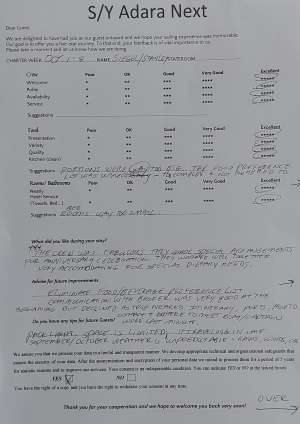 S/Y Adara Next
Dear Guest,
We are delighted to have had you as our guest onboard and we hope your sailing experience was memorable.
Our goal is to offer you a five star journey. To that end, your feedback is of vital importance to us.
Please take a moment and let us know how we are doing.
CHARTER WEEK Oct 1-8 NAME STATEROOM
Crew Poor OK Good Very Good Excellent
Welcome * ** *** **** *****
Polite * ** *** **** *****
Availability * ** *** **** *****
Service * ** *** **** *****
Suggestions
Food Poor OK Good Very Good Excellent
Presentation * ** *** **** *****
Variety * ** *** **** *****
Quality * ** *** **** *****
Kitchen (clean) * ** *** **** *****
Suggestions PORTIONS WERE WAY TOO BIG. THE FOOD PREFERENCE
LIST WAS
Rooms/ Bathrooms Poor OK Good Very Good Excellent
Neatly * ** *** **** *****
Hotel Service * ** *** **** *****
(Towels, Bed...)
Suggestions ROOMS WAY TOO SMALL
What did you like during your stay?
THE CREW WAS FABULOUS. THEY MADE SPECIAL ARRANGEMENTS
FOR ANNIVERSARY CELEBRATION. THEY WORKED WELL TOGETHER
VERY ACCOMMODATING FOR SPECIAL DIETARY NEEDS.
Advise for future improvements
ELIMINATE FOOD/BEVERAGE PREFERENCE LIST
COMMUNICATION WITH BROKER WAS VERY GOOD AT THE
BEGINNING BUT DECLINED AS TRIP NEARED. ITINERARY, PORTS,
Do you have any tips for future Guests?
WERE LAST MINUTE
PACK LIGHT. SPACE IS LIMITED. IF TRAVELING IN LATE
SEPTEMBER/OCTOBER WEATHER IS UNPREDICTABLE - RAINS, WINDS,
We assure you that we process your data in a lawful and transparent manner. We develop appropriate technical and organizational safeguards that
ensure the security of your data. After the anonymization and encryption of your personal data we intend to process them for a period of 5 years
for research reasons and to improve our services. Your consent is an indispensable condition. You can indicate YES or NO in the boxes below
YES NO
You have the right of a copy and you have the right to withdraw your consent at any time.
OVER
Thank you for your cooperation and we hope to welcome you back very soon!